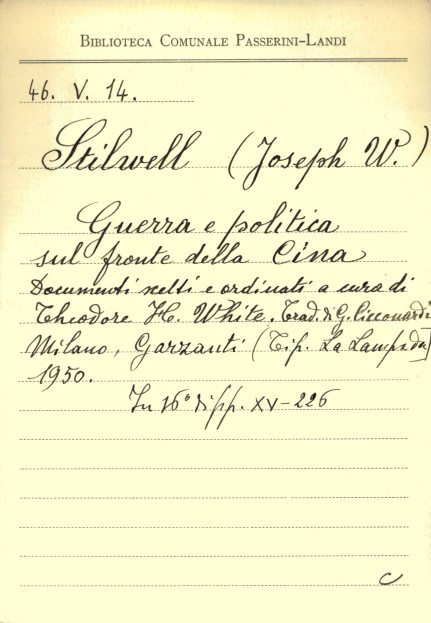 BIBLIOTECA COMUNALE PASSERINI-LANDI
46. V. 14.
Stilwell (Joseph W.)
Guerra e politica
sul fronte della Cina
Documenti scelti e ordinati a cura di
Theodore H. White. Trad. di G. Ciccouardi
Milano, Garzanti (Tip. La Lampada)
1950.
In 16° di pp. XV-226
C